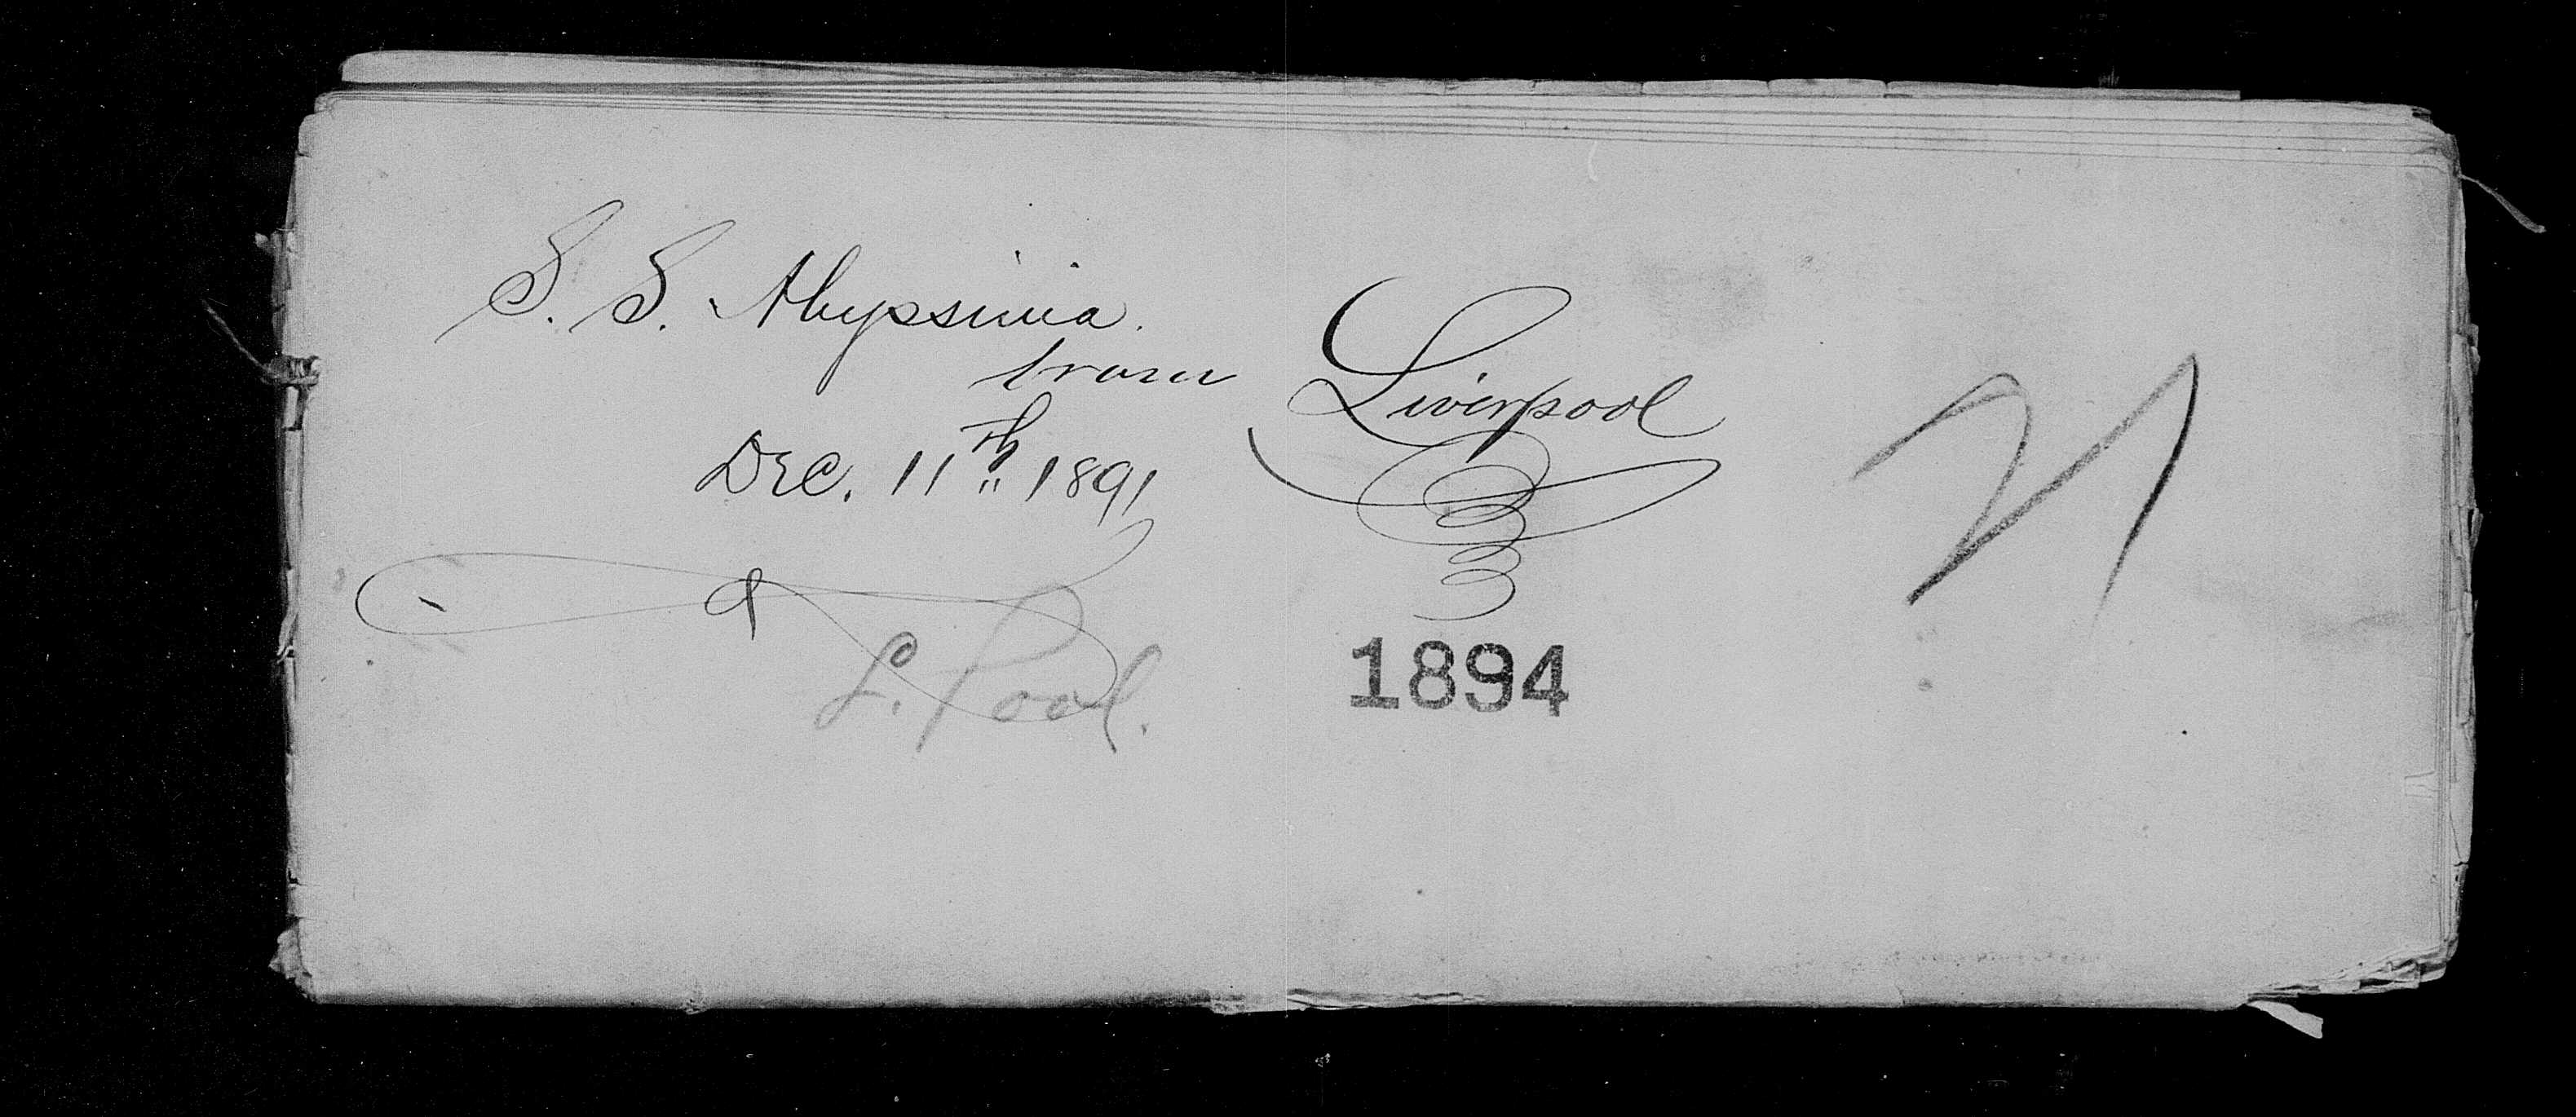 S. S. Abyssinia.
from Liverpool
Dec. 11th 1891
L. Pool.
1894